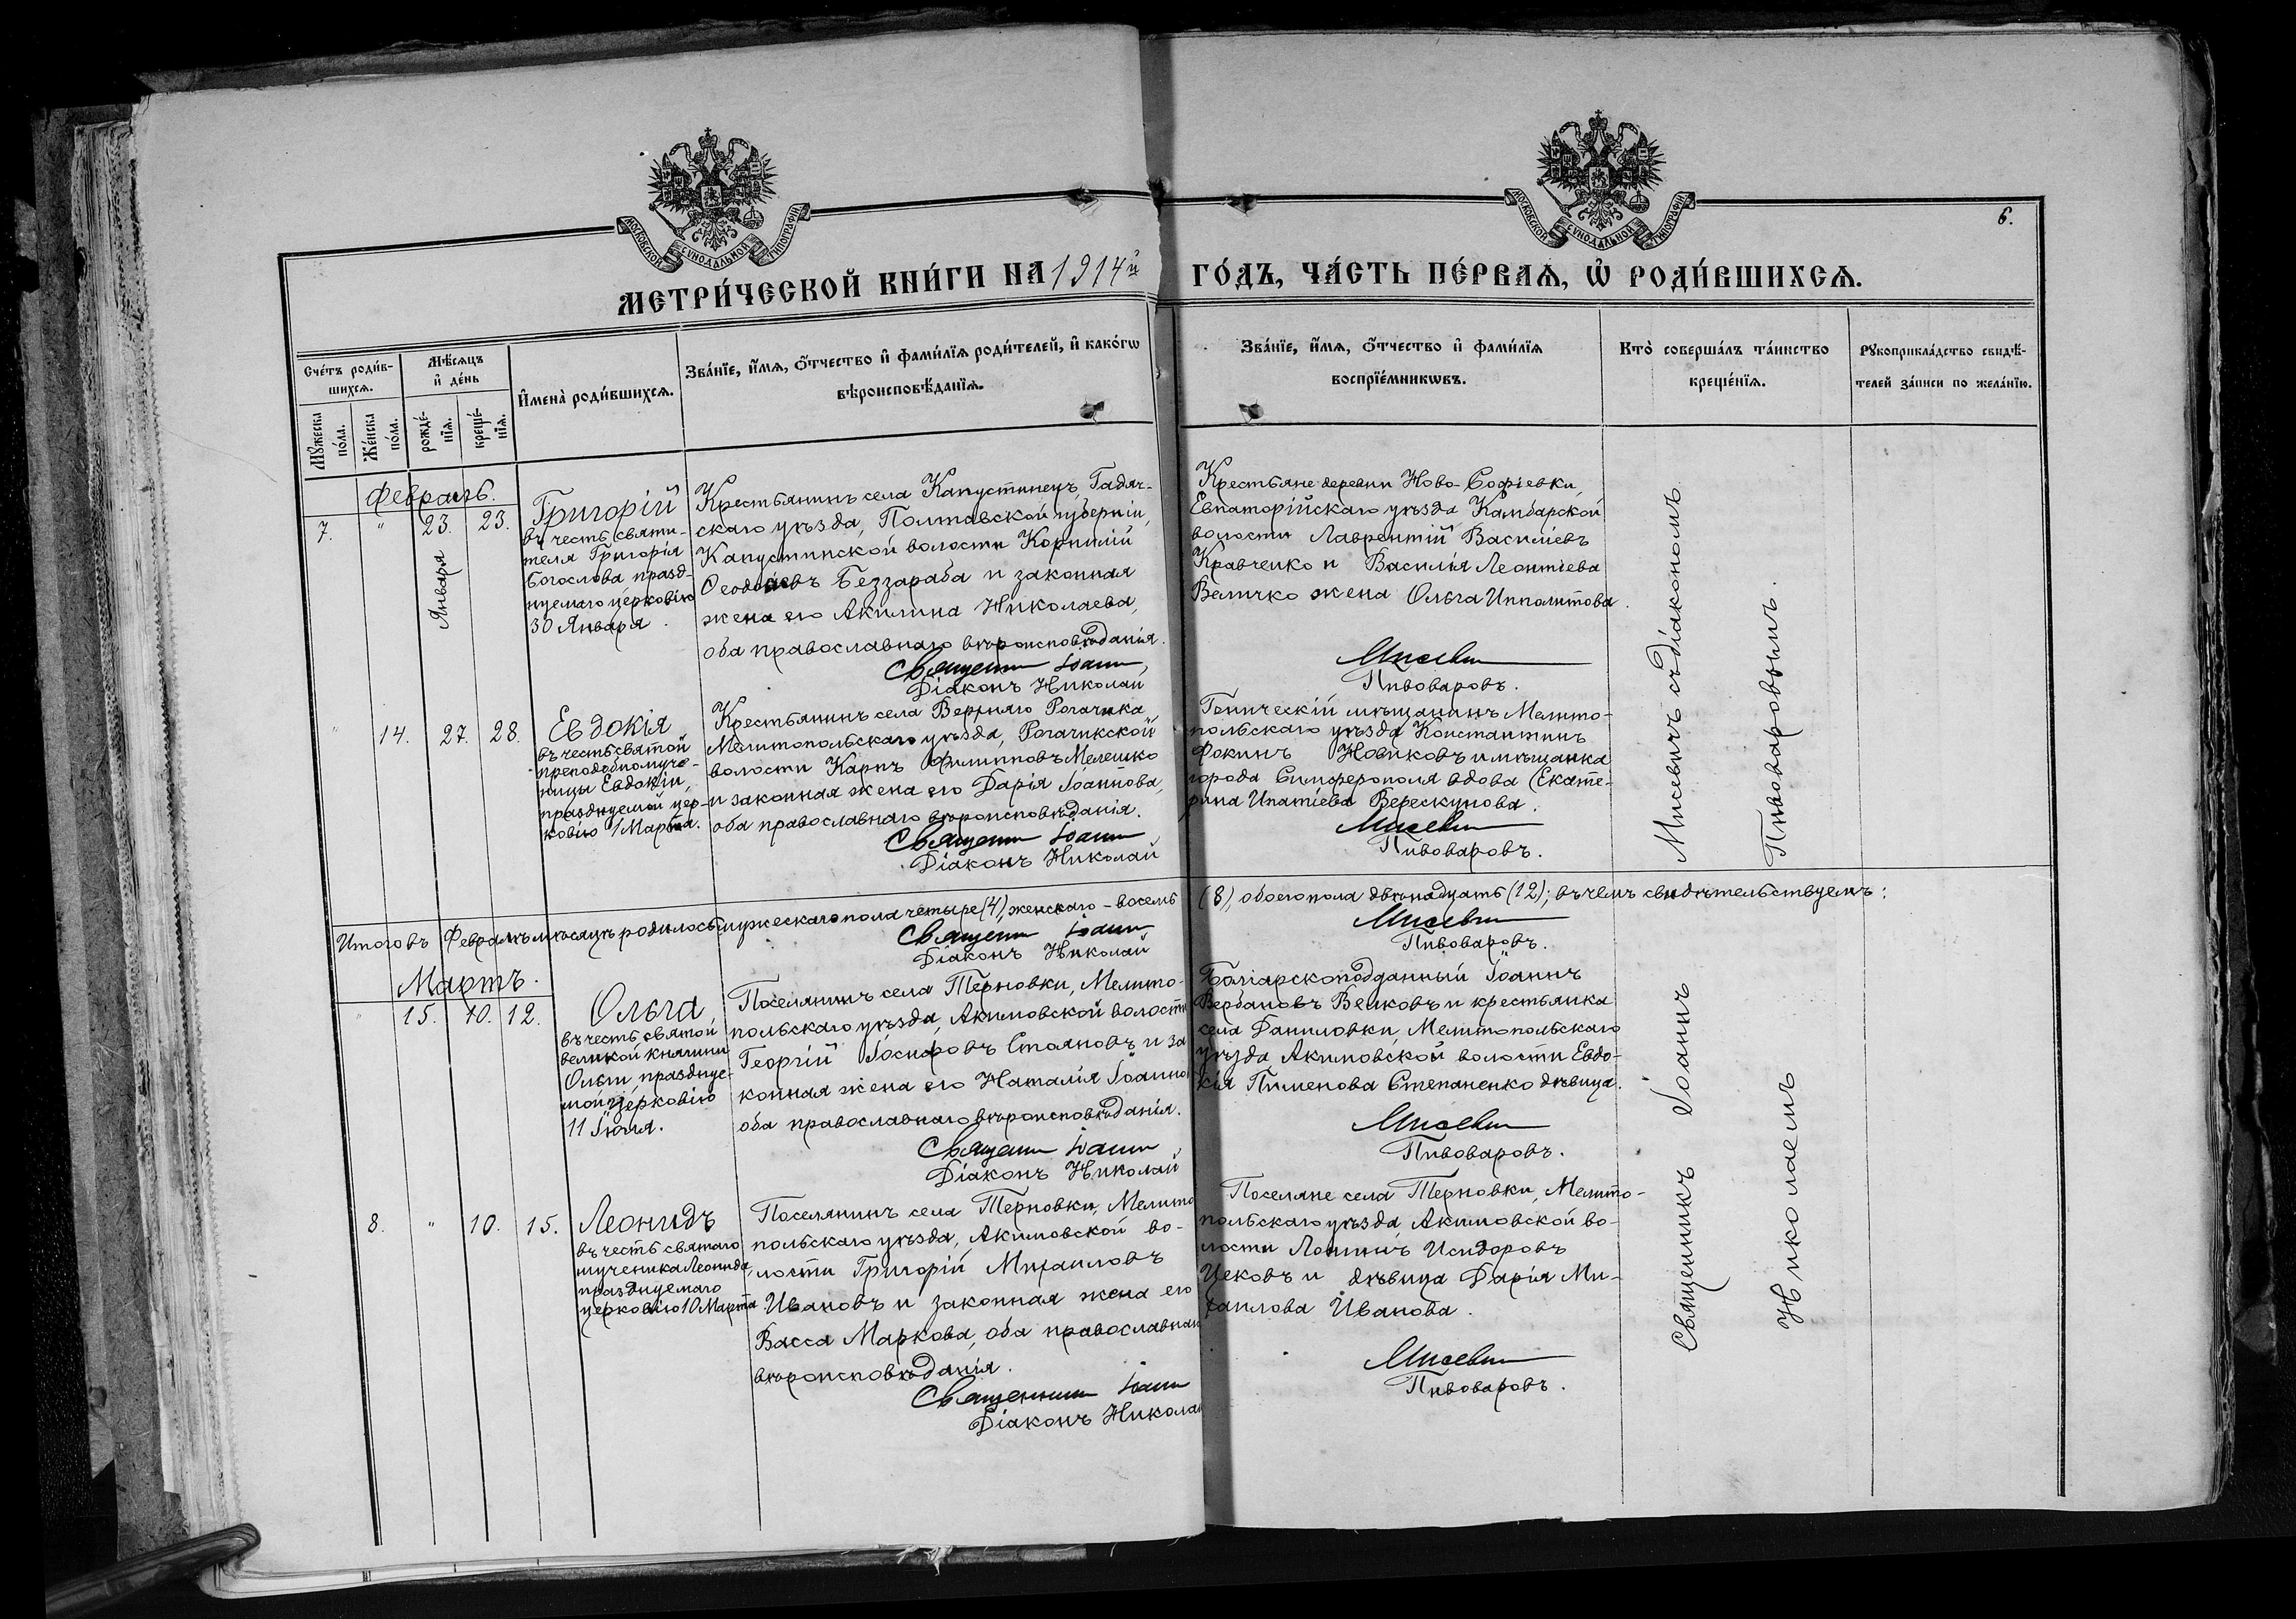 МОСКОВСКОЙ СѴНОДАЛЬНОЙ ТИПОГРАФІИ
МОСКОВСКОЙ СѴНОДАЛЬНОЙ ТИПОГРАФІИ
6.
МЕТРИ́ЧЕСКОЙ КНИ́ГИ НА 1914й ГО́ДЪ, ЧА́СТЬ ПЕ́РВАѦ, Ѡ҆ РОДИ́ВШИХСѦ.
Сче́тъ роди́в-
шихсѧ.
Мѣ́сѧцъ
и҆ де́нь
Мꙋ́жеска
по́ла.
Же́нска
по́ла.
рожде́-
нїѧ.
креще́-
нїѧ.
И҆мена̀ роди́вшихсѧ.
Зва́нїе, и҆́мѧ, ѻ҆́тчество и҆ фами́лїѧ роди́телей, и҆ како́гѡ
вѣроисповѣ́данїѧ.
Зва́нїе, и҆́мѧ, ѻ҆́тчество и҆ фами́лїѧ
воспрїе́мникѡвъ.
Кто̀ соверша́лъ та́инство
креще́нїѧ.
Рꙋкоприкла́дство свидѣ́-
телей за́писи по жела́нїю.
Февраль.
7. " 23. 23.
Января
Григорій
въ честь святи-
теля Григорія
Богослова празд-
нуемаго церковію
30 Января.
Крестьянинъ села Капустинецъ, Гадяч-
скаго уѣзда, Полтавской губерніи,
Капустинской волости Корнилій
Ѳеодосіевъ Беззараба и законная
жена его Акилина Николаева,
оба православнаго вѣроисповѣданія.
Священн Іоанн
Діаконъ Николай
Крестьяне деревни Ново-Софіевки,
Евпаторійскаго уѣзда Камбарской
волости Лаврентій Василіевъ
Кравченко и Василія Леонтіева
Величко жена Ольга Ипполитова.
Мисевич
Пивоваровъ.
" 14. 27. 28.
Евдокія
въ честь святой
преподобномуче-
ницы Евдокіи,
празднуемой цер-
ковію 1 Марта.
Крестьянинъ села Верхняго Рогачика
Мелитопольскаго уѣзда, Рогачикской
волости Карпъ Филипповъ Мелешко
и законная жена его Дарія Іоаннова,
оба православнаго вѣроисповѣданія.
Священн Іоанн
Діаконъ Николай
Геническій мѣщанинъ Мелито-
польскаго уѣзда Константинъ
Фокинъ Новиковъ и мѣщанка
города Симферополя вдова Екате-
рина Ипатіева Верескунова.
Мисевич
Пивоваровъ.
Итого въ Февралѣ мѣсяцѣ родилось мужескаго пола четыре (4), женскаго - восемь (8), обоего пола двѣнадцать (12); въ чемъ свидѣтельствуемъ:
Священн Іоанн Мисевич
Діаконъ Николай Пивоваровъ.
Мартъ.
" 15. 10. 12.
Ольга
въ честь святой
великой княгини
Ольги, празднуе-
мой церковію
11 Іюля.
Поселянинъ села Терновки, Мелито-
польскаго уѣзда, Акимовской волости
Георгій Іосифовъ Стояновъ и за
конная жена его Наталія Іоаннов
оба православнаго вѣроисповѣданія.
Священн Іоанн
Діаконъ Николай
Болгарскоподданный Іоаннъ
Вербановъ Велковъ и крестьянка
села Даниловки, Мелитопольскаго
уѣзда Акимовской волости Евдо-
кія Пименова Степаненко дѣвица.
Мисевич
Пивоваровъ.
8. " 10. 15.
Леонидъ
въ честь святаго
мученика Леонида,
празднуемаго
церковію 10 Марта
Поселянинъ села Терновки, Мелито
польскаго уѣзда, Акимовской во-
лости Григорій Михаиловъ
Ивановъ и законная жена его
Васса Маркова, оба православнаг
вѣроисповѣданія.
Священник Іоанн
Діаконъ Никола
Поселяне села Терновки, Мелито-
польскаго уѣзда, Акимовской во-
лости Логинъ Исидоровъ
Цековъ и дѣвица Дарія Ми-
хаилова Иванова.
Мисевич
Пивоваровъ.
Священникъ Іоаннъ Мисевичъ съ діакономъ
Николаемъ Пивоваровымъ.